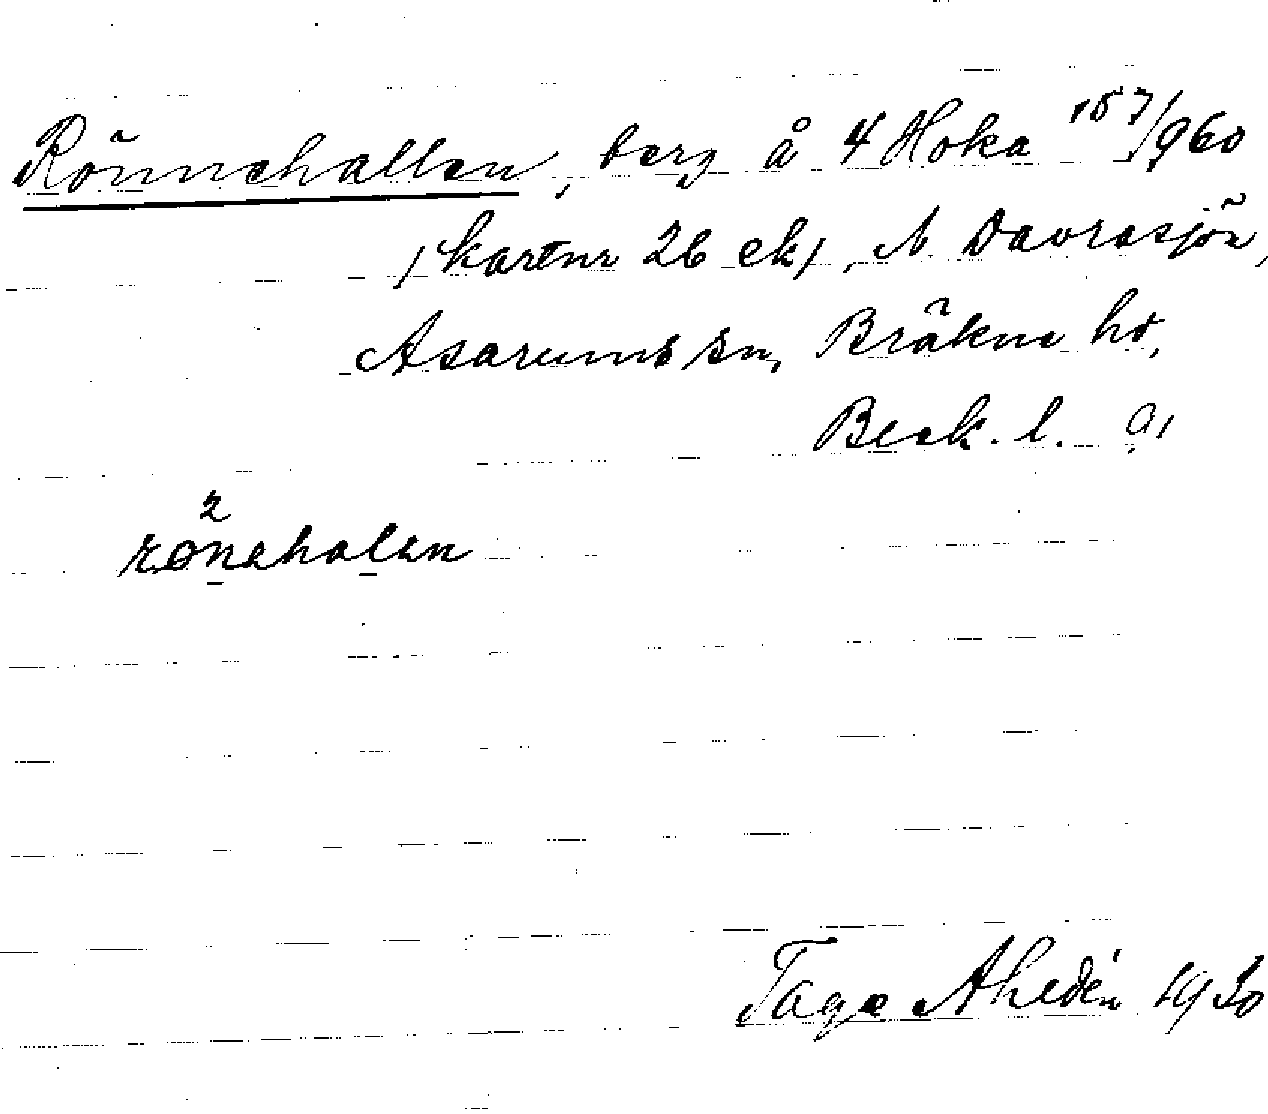 Rönnehallen, berg å 4 Hoka 157/960
/kartnr 26 ek/, N Davrasjön,
Asarums sn, Bräkne hd,
Bleck. l.
2
rönehalen
Tage Ahldén 1930